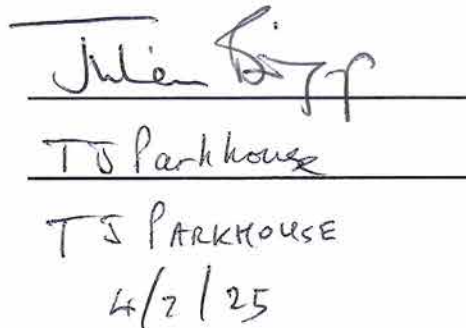 Julian
TJ Parkhouse
TJ PARKHOUSE
4/2/25